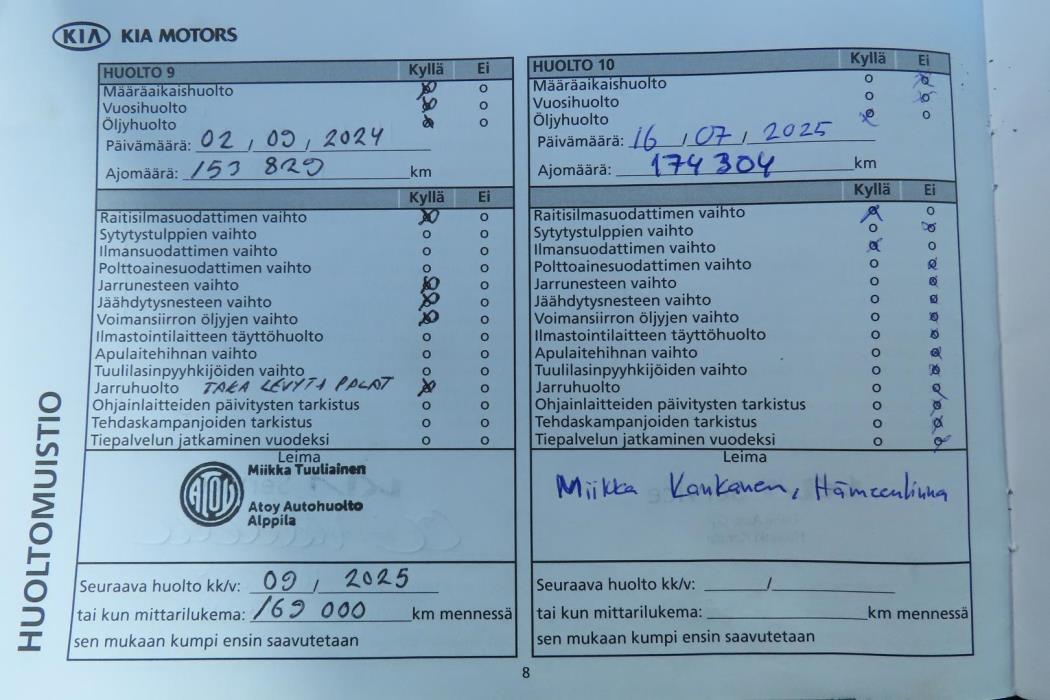 KIA KIA MOTORS
HUOLTO 9 Kyllä Ei
Määräaikaishuolto
Vuosihuolto
Öljyhuolto
Päivämäärä: 02 / 09 / 2024
Ajomäärä: 153 829 km
Kyllä Ei
Raitisilmasuodattimen vaihto
Sytytystulppien vaihto
Ilmansuodattimen vaihto
Polttoainesuodattimen vaihto
Jarrunesteen vaihto
Jäähdytysnesteen vaihto
Voimansiirron öljyjen vaihto
Ilmastointilaitteen täyttöhuolto
Apulaitehihnan vaihto
Tuulilasinpyyhkijöiden vaihto
Jarruhuolto TAKA LEVYT+PALAT
Ohjainlaitteiden päivitysten tarkistus
Tehdaskampanjoiden tarkistus
Tiepalvelun jatkaminen vuodeksi
Leima
Miikka Tuuliainen
ATOY
Atoy Autohuolto
Alppila
Seuraava huolto kk/v: 09 / 2025
tai kun mittarilukema: 169 000 km mennessä
sen mukaan kumpi ensin saavutetaan
HUOLTO 10 Kyllä Ei
Määräaikaishuolto
Vuosihuolto
Öljyhuolto
Päivämäärä: 16 / 07 / 2025
Ajomäärä: 174 304 km
Kyllä Ei
Raitisilmasuodattimen vaihto
Sytytystulppien vaihto
Ilmansuodattimen vaihto
Polttoainesuodattimen vaihto
Jarrunesteen vaihto
Jäähdytysnesteen vaihto
Voimansiirron öljyjen vaihto
Ilmastointilaitteen täyttöhuolto
Apulaitehihnan vaihto
Tuulilasinpyyhkijöiden vaihto
Jarruhuolto
Ohjainlaitteiden päivitysten tarkistus
Tehdaskampanjoiden tarkistus
Tiepalvelun jatkaminen vuodeksi
Leima
Miikka Kankanen, Hämeenlinna
Seuraava huolto kk/v: /
tai kun mittarilukema: km mennessä
sen mukaan kumpi ensin saavutetaan
HUOLTOMUISTIO
8